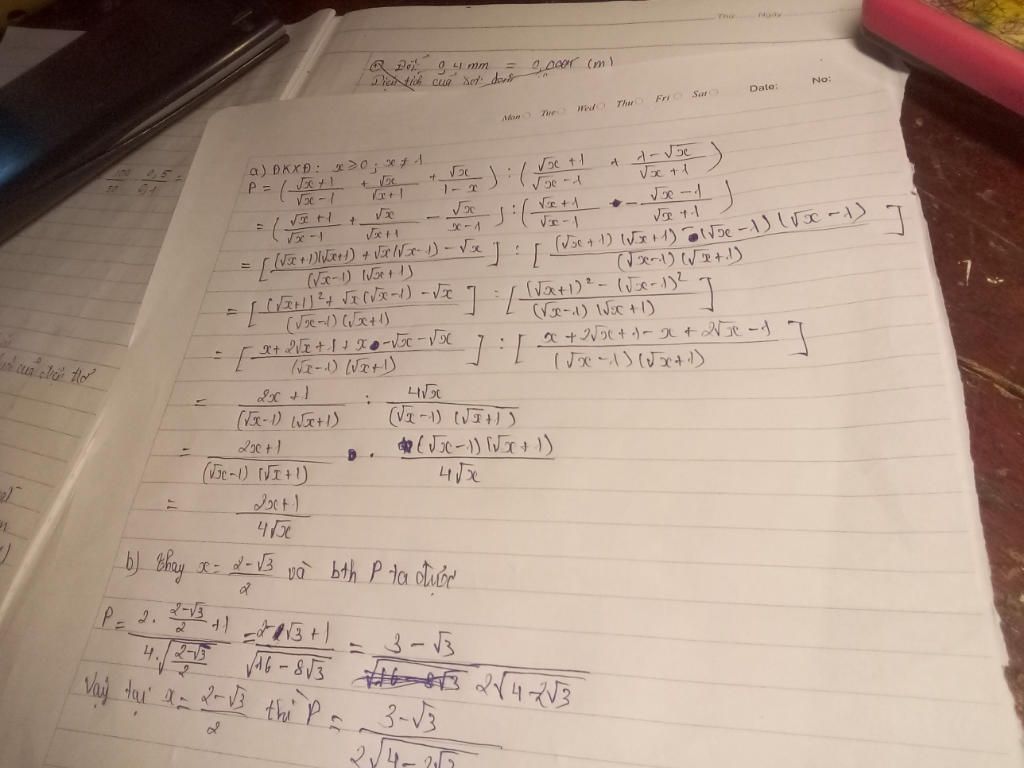 Thứ Ngày
Đổi 0,4 mm = 0,0004 (m)
Diện tích của
Mon Tue Wed Thu Fri Sat Date: No:
a) ĐKXĐ: x ≥ 0 ; x ≠ 1
P = ( (√x + 1)/(√x - 1) + √x/(√x + 1) + √x/(1 - x) ) : ( (√x + 1)/(√x - 1) + (1 - √x)/(√x + 1) )
= ( (√x + 1)/(√x - 1) + √x/(√x + 1) - √x/(x - 1) ) : ( (√x + 1)/(√x - 1) - (√x - 1)/(√x + 1) )
= [ ((√x + 1)(√x + 1) + √x(√x - 1) - √x)/((√x - 1)(√x + 1)) ] : [ ((√x + 1)(√x + 1) - (√x - 1)(√x - 1))/((√x - 1)(√x + 1)) ]
= [ ((√x + 1)² + √x(√x - 1) - √x)/((√x - 1)(√x + 1)) ] : [ ((√x + 1)² - (√x - 1)²)/((√x - 1)(√x + 1)) ]
= [ (x + 2√x + 1 + x - √x - √x)/((√x - 1)(√x + 1)) ] : [ (x + 2√x + 1 - x + 2√x - 1)/((√x - 1)(√x + 1)) ]
= (2x + 1)/((√x - 1)(√x + 1)) : 4√x/((√x - 1)(√x + 1))
= (2x + 1)/((√x - 1)(√x + 1)) . ((√x - 1)(√x + 1))/(4√x)
= (2x + 1)/(4√x)
b) thay x = (2 - √3)/2 và bth P ta được
P = (2. (2 - √3)/2 + 1)/(4.√((2 - √3)/2)) = (2 - √3 + 1)/√(16 - 8√3) = (3 - √3)/(2√(4 - 2√3))
Vậy tại x = (2 - √3)/2 thì P = (3 - √3)/(2√(4 - 2√3))